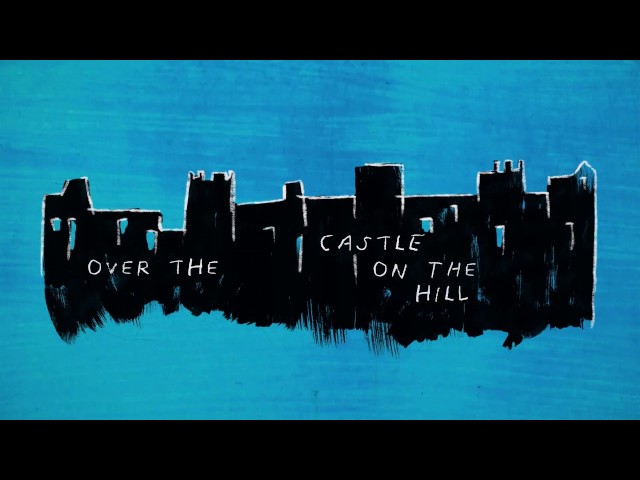 OVER THE CASTLE
ON THE
HILL